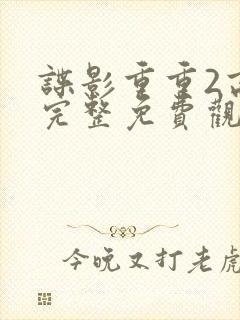 諜影重重2
完整免費觀
今晚又打老虎